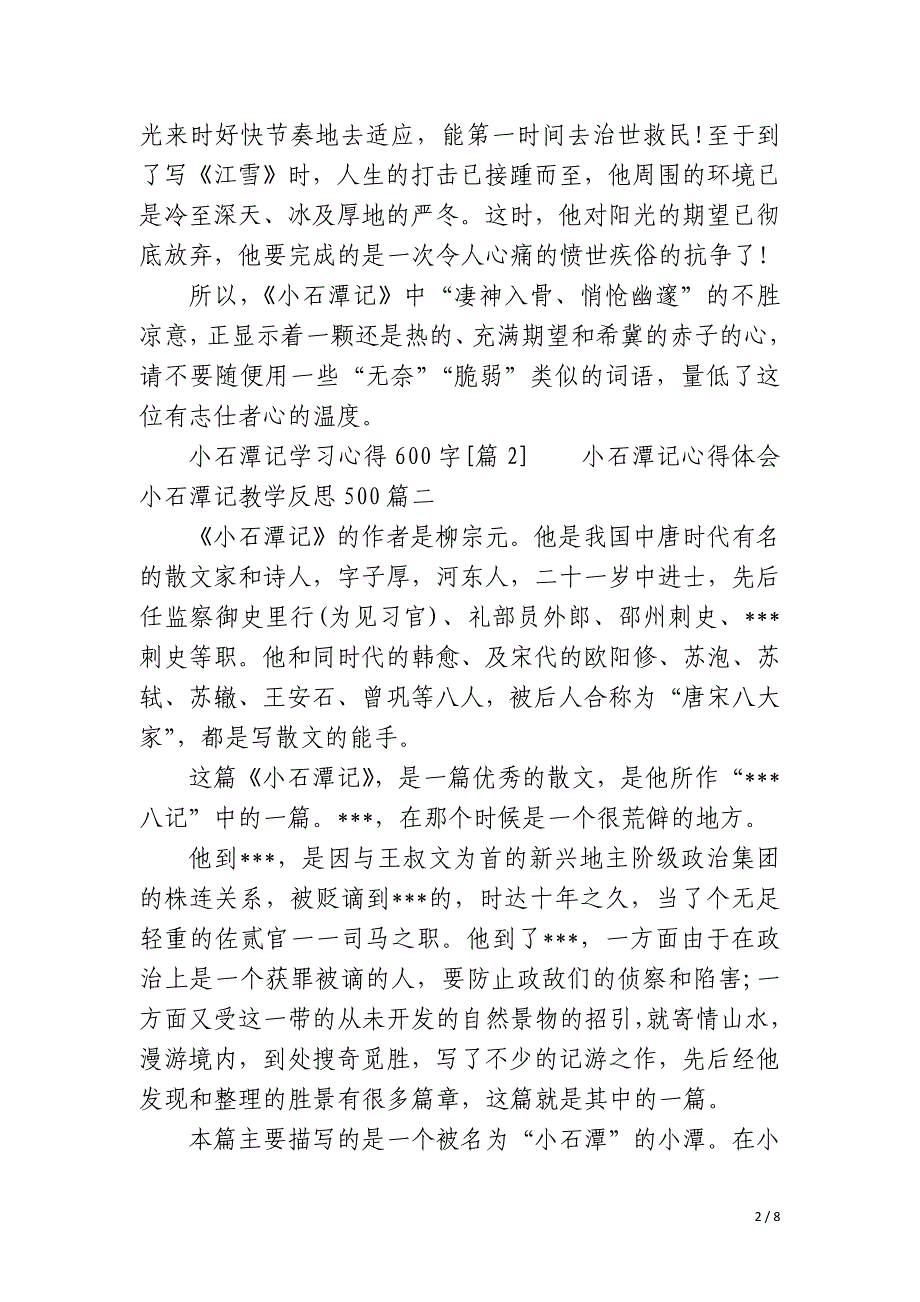 光来时好快节奏地去适应，能第一时间去治世救民!至于到
了写《江雪》时，人生的打击已接踵而至，他周围的环境已
是冷至深天、冰及厚地的严冬。这时，他对阳光的期望已彻
底放弃，他要完成的是一次令人心痛的愤世疾俗的抗争了!
所以，《小石潭记》中“凄神入骨、悄怆幽邃”的不胜
凉意，正显示着一颗还是热的、充满期望和希冀的赤子的心，
请不要随便用一些“无奈”“脆弱”类似的词语，量低了这
位有志仕者心的温度。
小石潭记学习心得 600 字[篇 2] 小石潭记心得体会
小石潭记教学反思 500 篇二
《小石潭记》的作者是柳宗元。他是我国中唐时代有名
的散文家和诗人，字子厚，河东人，二十一岁中进士，先后
任监察御史里行(为见习官)、礼部员外郎、邵州刺史、***
刺史等职。他和同时代的韩愈、及宋代的欧阳修、苏泡、苏
轼、苏辙、王安石、曾巩等八人，被后人合称为“唐宋八大
家”，都是写散文的能手。
这篇《小石潭记》，是一篇优秀的散文，是他所作“***
八记”中的一篇。***，在那个时候是一个很荒僻的地方。
他到***，是因与王叔文为首的新兴地主阶级政治集团
的株连关系，被贬谪到***的，时达十年之久，当了个无足
轻重的佐贰官一一司马之职。他到了***，一方面由于在政
治上是一个获罪被谪的人，要防止政敌们的侦察和陷害;一
方面又受这一带的从未开发的自然景物的招引，就寄情山水，
漫游境内，到处搜奇觅胜，写了不少的记游之作，先后经他
发现和整理的胜景有很多篇章，这篇就是其中的一篇。
本篇主要描写的是一个被名为“小石潭”的小潭。在小
2 / 8